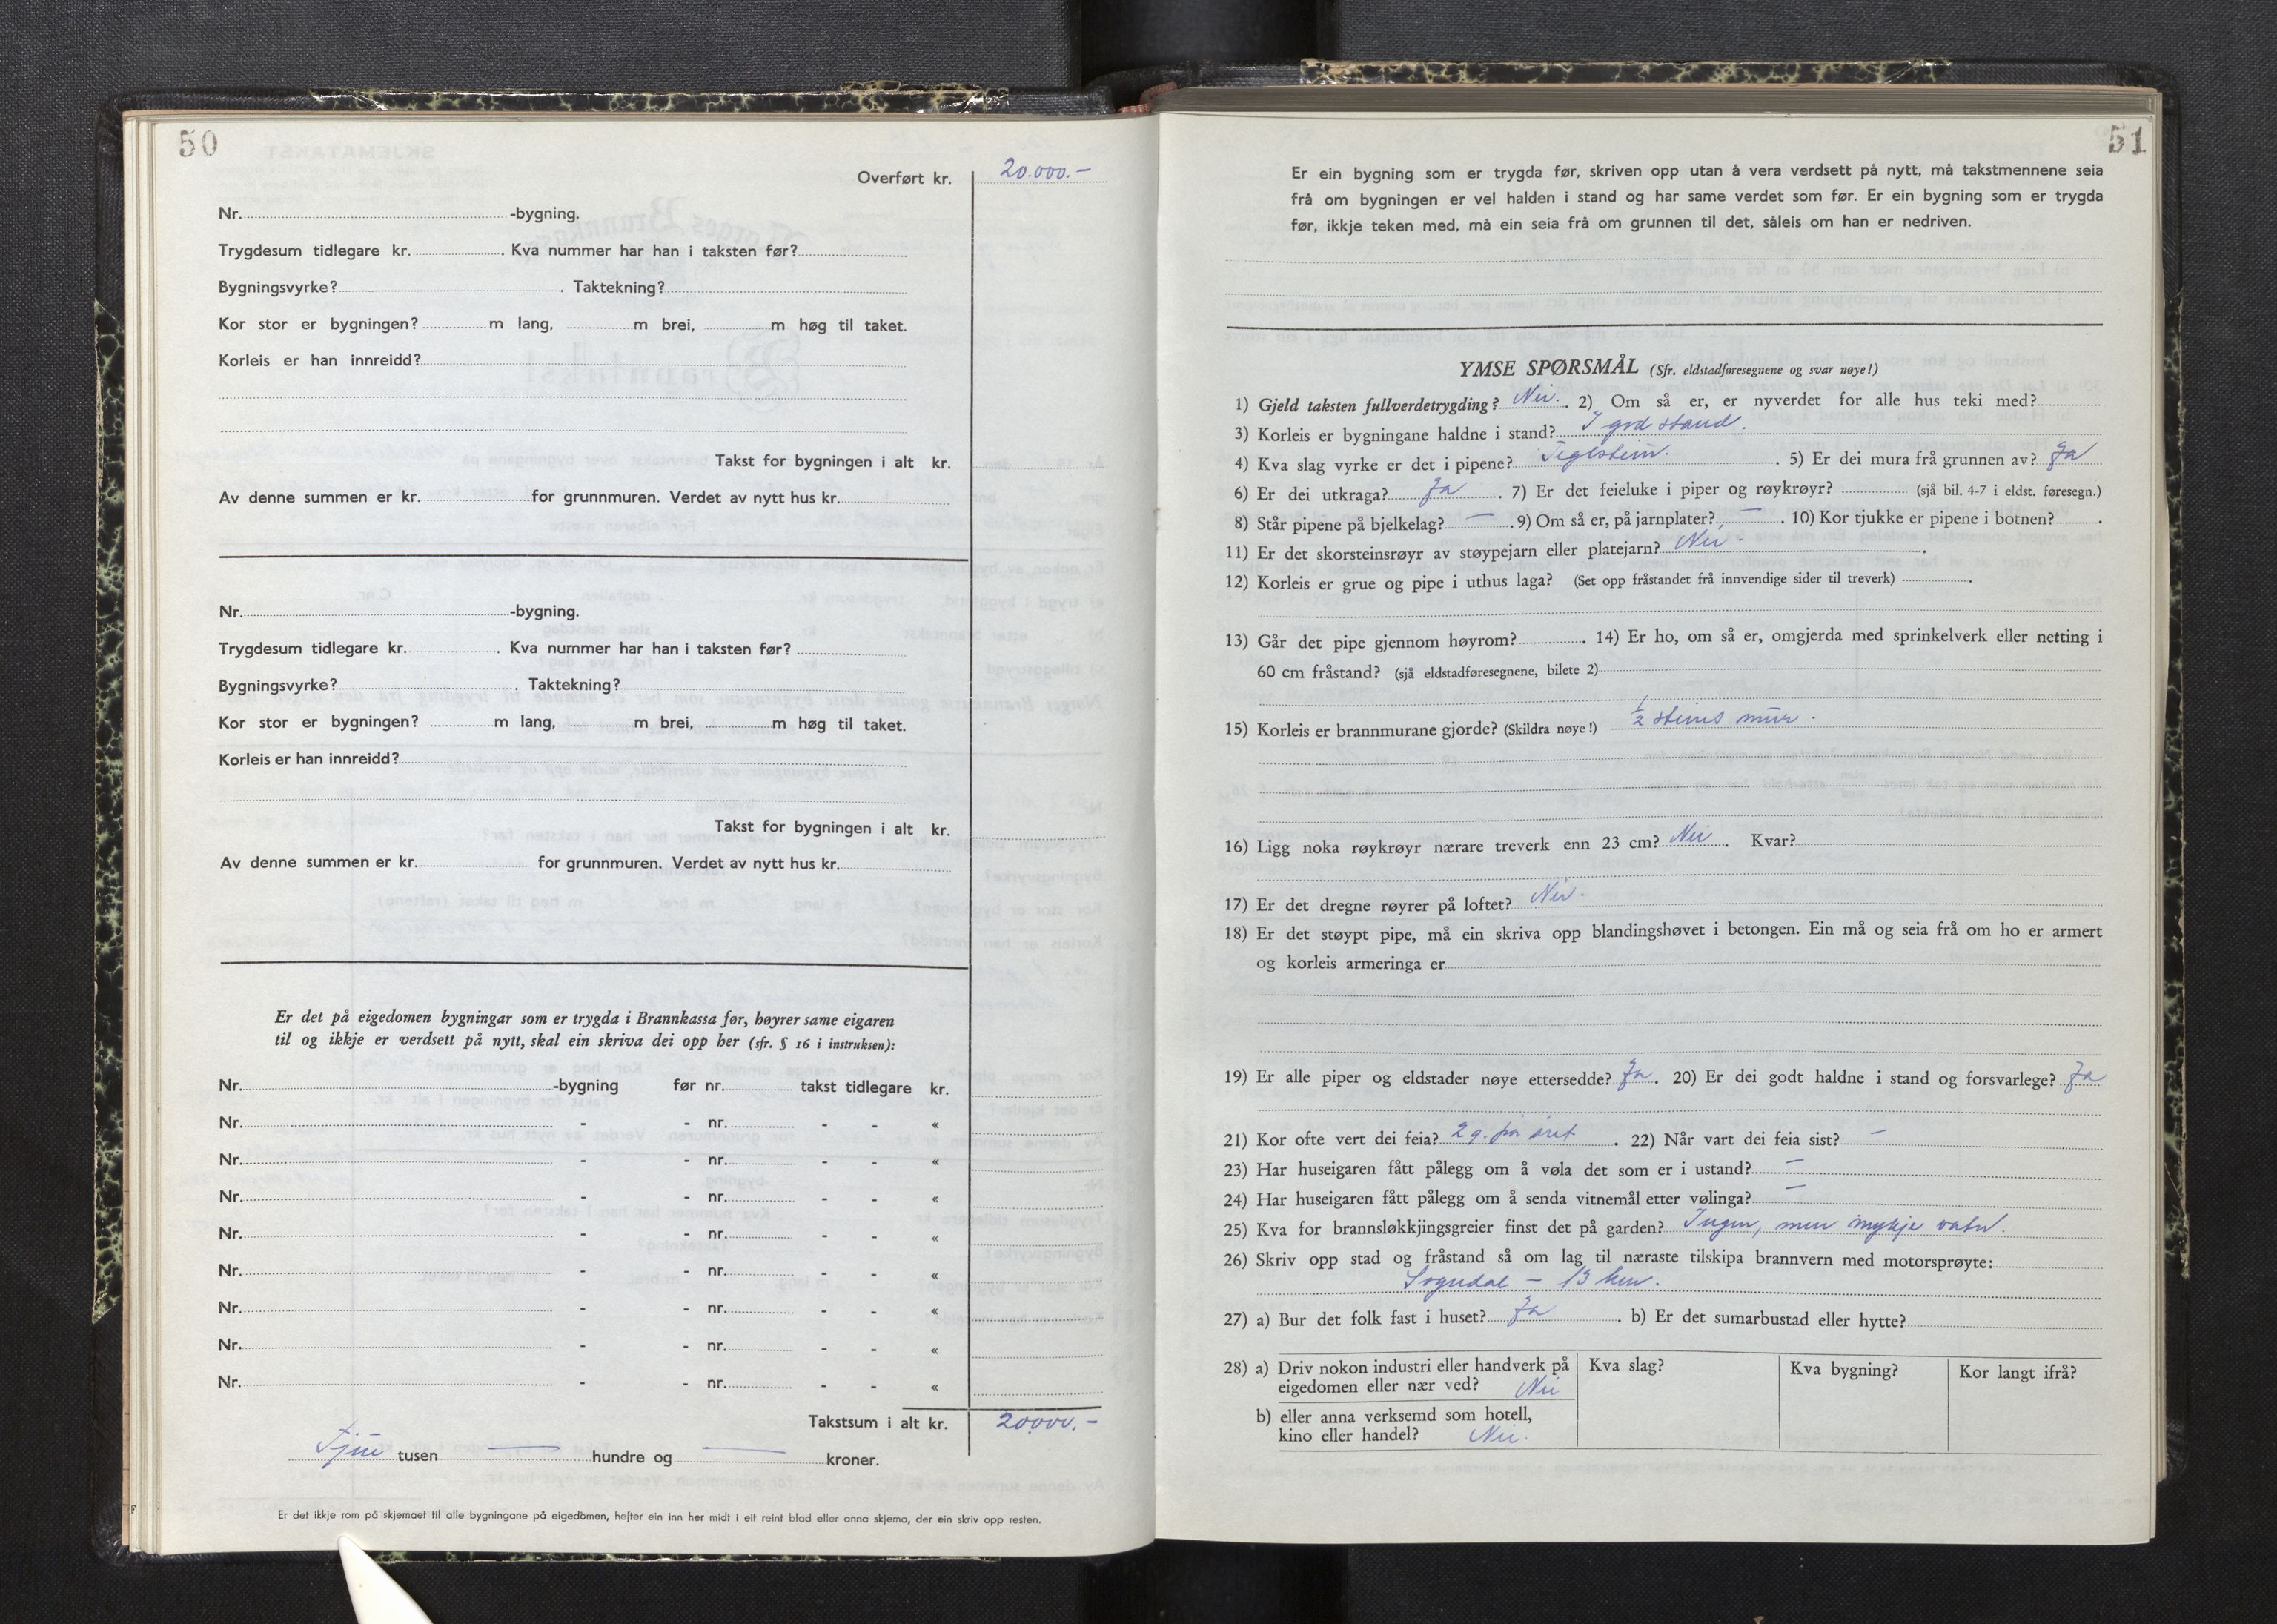 50
Overført kr. 20.000.-
Nr. -bygning.
Trygdesum tidlegare kr. . Kva nummer har han i taksten før?
Bygningsvyrke? . Taktekning?
Kor stor er bygningen? m lang, m brei, m høg til taket.
Korleis er han innreidd?
Takst for bygningen i alt kr.
Av denne summen er kr. for grunnmuren. Verdet av nytt hus kr.
Nr. -bygning.
Trygdesum tidlegare kr. . Kva nummer har han i taksten før?
Bygningsvyrke? . Taktekning?
Kor stor er bygningen? m lang, m brei, m høg til taket.
Korleis er han innreidd?
Takst for bygningen i alt kr.
Av denne summen er kr. for grunnmuren. Verdet av nytt hus kr.
Er det på eigedomen bygningar som er trygda i Brannkassa før, høyrer same eigaren
til og ikkje er verdsett på nytt, skal ein skriva dei opp her (sfr. § 16 i instruksen):
Nr. -bygning før nr. takst tidlegare kr.
Nr. - - nr. - - «
Nr. - - nr. - - «
Nr. - - nr. - - «
Nr. - - nr. - - «
Nr. - - nr. - - «
Nr. - - nr. - - «
Nr. - - nr. - - «
Nr. - - nr. - - «
Takstsum i alt kr. 20000.-
Tjue tusen — hundre og — kroner.
Er det ikkje rom på skjemaet til alle bygningane på eigedomen, hefter ein inn her midt i eit reint blad eller anna skjema, der ein skriv opp resten.
51
Er ein bygning som er trygda før, skriven opp utan å vera verdsett på nytt, må takstmennene seia
frå om bygningen er vel halden i stand og har same verdet som før. Er ein bygning som er trygda
før, ikkje teken med, må ein seia frå om grunnen til det, såleis om han er nedriven.
YMSE SPØRSMÅL (Sfr. eldstadføresegnene og svar nøye!)
1) Gjeld taksten fullverdetrygding? Nei. . 2) Om så er, er nyverdet for alle hus teki med?
3) Korleis er bygningane haldne i stand? I god stand.
4) Kva slag vyrke er det i pipene? Teglstein. . 5) Er dei mura frå grunnen av? Ja
6) Er dei utkraga? Ja . 7) Er det feieluke i piper og røykrøyr? (sjå bil. 4-7 i eldst. føresegn.)
8) Står pipene på bjelkelag? — . 9) Om så er, på jarnplater? — . 10) Kor tjukke er pipene i botnen? .
11) Er det skorsteinsrøyr av støypejarn eller platejarn? Nei .
12) Korleis er grue og pipe i uthus laga? (Set opp fråstandet frå innvendige sider til treverk) .
13) Går det pipe gjennom høyrom? . 14) Er ho, om så er, omgjerda med sprinkelverk eller netting i
60 cm fråstand? (sjå eldstadføresegnene, bilete 2)
15) Korleis er brannmurane gjorde? (Skildra nøye!) 1/2 steins mur.
16) Ligg noka røykrøyr nærare treverk enn 23 cm? Nei . Kvar?
17) Er det dregne røyrer på loftet? Nei.
18) Er det støypt pipe, må ein skriva opp blandingshøvet i betongen. Ein må og seia frå om ho er armert
og korleis armeringa er
19) Er alle piper og eldstader nøye ettersedde? Ja . 20) Er dei godt haldne i stand og forsvarlege? Ja
21) Kor ofte vert dei feia? 2 g. for året . 22) Når vart dei feia sist? —
23) Har huseigaren fått pålegg om å vøla det som er i ustand? —
24) Har huseigaren fått pålegg om å senda vitnemål etter vølinga? —
25) Kva for brannsløkkjingsgreier finst det på garden? Ingen, men mykje vatn.
26) Skriv opp stad og fråstand så om lag til næraste tilskipa brannvern med motorsprøyte:
Sogndal – 13 km.
27) a) Bur det folk fast i huset? Ja . b) Er det sumarbustad eller hytte?
28) a) Driv nokon industri eller handverk på Kva slag? Kva bygning? Kor langt ifrå?
eigedomen eller nær ved? Nei
b) eller anna verksemd som hotell,
kino eller handel? Nei.